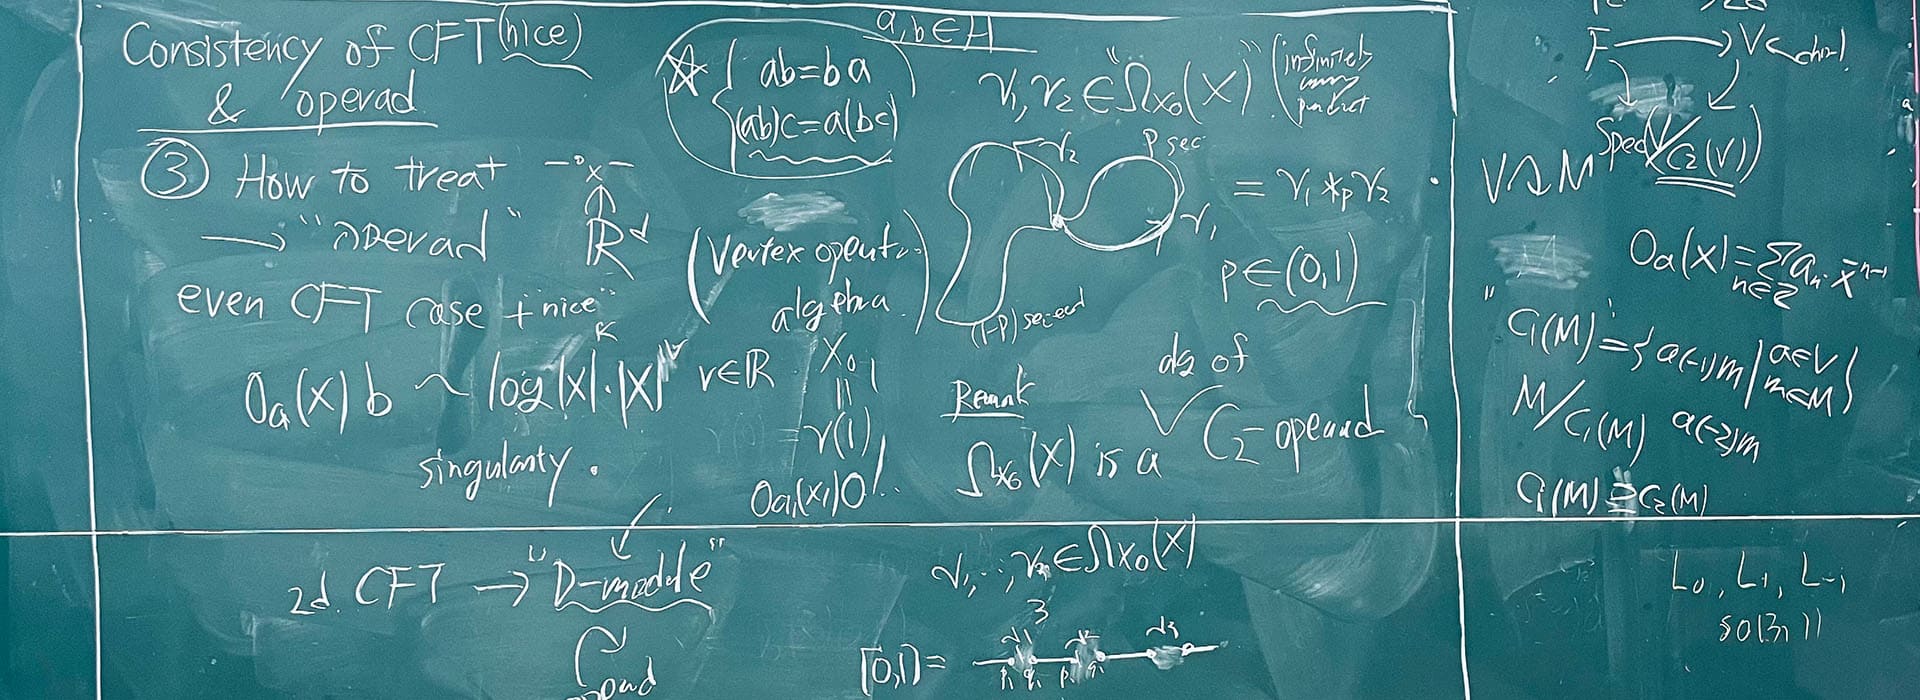 Consistency of CFT (nice)
& operad
③ How to treat
→ "operad" ℝ^d
even CFT case + "nice"
O_a(x) b ~ log|x|^k · |x|^r r∈ℝ
singularity.
a, b ∈ H
☆ { ab=ba
(ab)c=a(bc)
(Vertex operator
algebra.)
x_0
||
= γ(1)
γ_1, γ_2 ∈ "Ω_{x_0}(X)" (infinitely
many
product
γ_2
p sec
γ_1
= γ_1 *_p γ_2
p ∈ (0,1)
(1-p) second
Remark
Ω_{x_0}(X) is a C_2-operad
alg of
2d. CFT → "D-module"
operad
γ_1, …, γ_3 ∈ Ω_{x_0}(X)
3
[0,1] =
γ_1 γ_2 γ_3
p_1 q_1
F → V
Spec V/C_2(V)
V ↷ M
O_a(x) = Σ_{n∈ℤ} a_n x^{-n-1}
C_1(M) = { a(-1)m | a∈V
m∈M }
M/C_1(M) a(-2)m
C_1(M) ⊇ C_2(M)
L_0, L_1, L_{-1}
so(3,1)